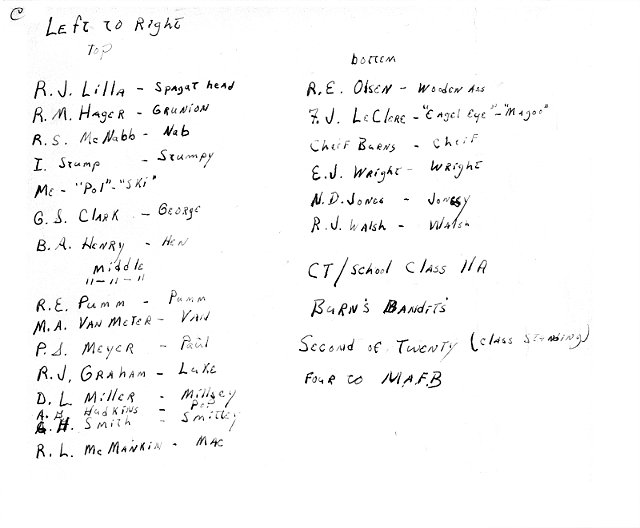 C
Left to Right
Top
R.J. Lilla - Spagat head
R.M. Hager - Grunion
R.S. McNabb - Nab
I. Stump - Stumpy
Me - "Pol" - "Ski"
G.S. Clark - George
B.A. Henry - Hen
Middle
11-11-11
R.E. Pumm - Pumm
M.A. Van Meter - Van
P.S. Meyer - Paul
R.J. Graham - Luke
D.L. Miller - Millsey
A.H. Hudkins -
G.H. Smith - Smitley
R.L. McMankin - Mac
botten
R.E. Olsen - Wooden Ass
F.J. LeClere - "Eagel Eye" - "Magoo"
Cheif Burns - Cheif
E.J. Wright - Wright
N.D. Jones - Jonesy
R.J. Walsh - Walsh
CT/School Class 11A
Burn's Bandits
Second of Twenty (class standing)
Four to M.A.F.B